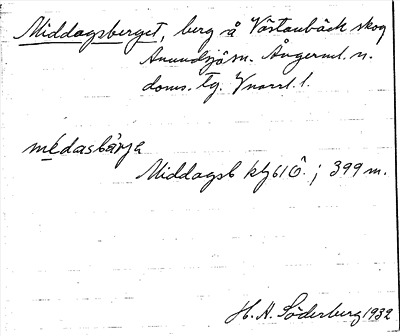 Middagsberget, berg å Västanbäck skog
Anundsjö sn. Ångerml. n.
doms. tg. Vnorrl. l.
médasbärja
Middagsb kbl 61 Ö. ; 399 m.
H. H. Söderberg 1932